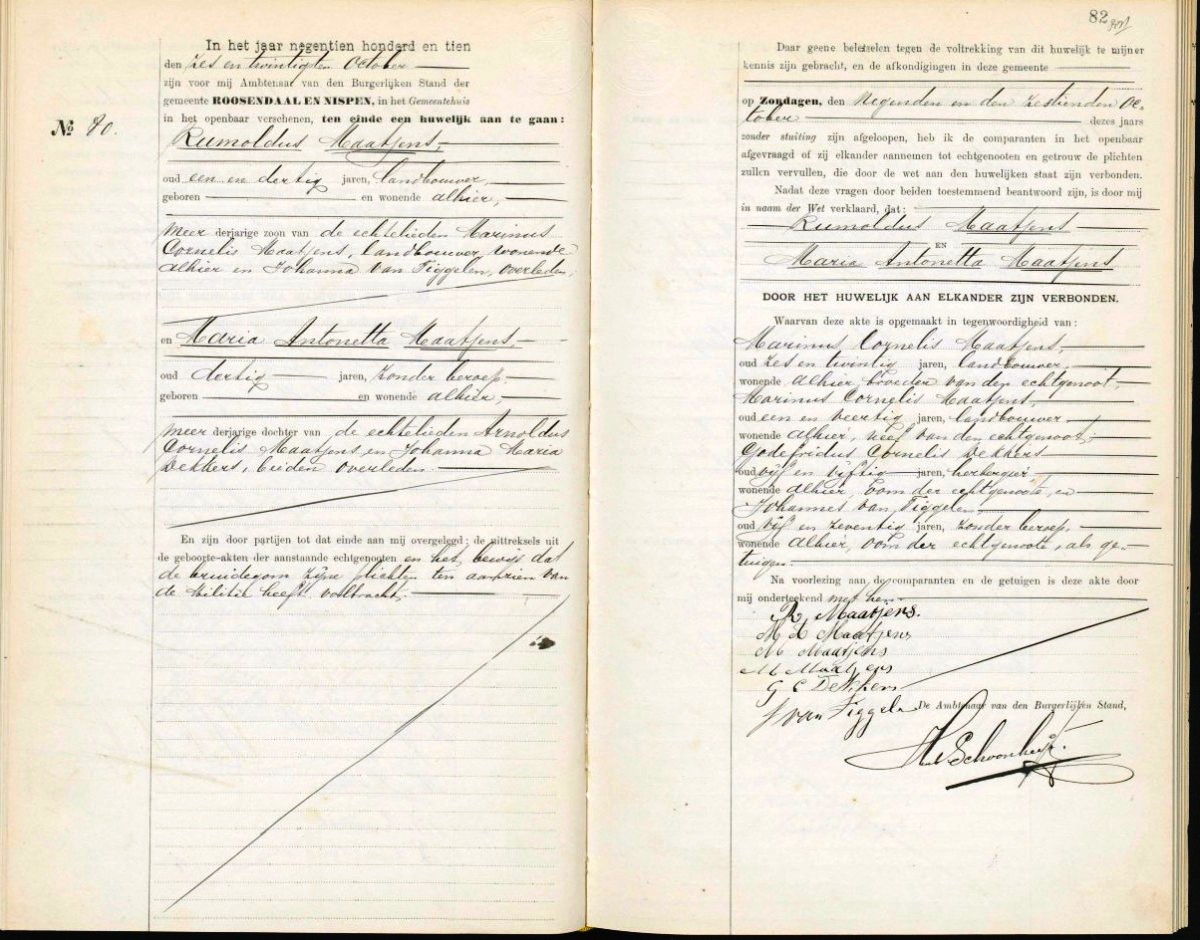 In het jaar negentien honderd en tien
den zes en twintigsten October
zijn voor mij Ambtenaar van den Burgerlijken Stand der
gemeente ROOSENDAAL EN NISPEN, in het Gemeentehuis
in het openbaar verschenen, ten einde een huwelijk aan te gaan:
№ 80.
Rumoldus Maatjens,
oud een en dertig jaren, landbouwer,
geboren en wonende alhier,
meer derjarige zoon van de echtelieden Marinus
Cornelis Maatjens, landbouwer, wonende
alhier en Johanna van Tiggelen, overleden,
en Maria Antonetta Maatjens,
oud dertig jaren, zonder beroep,
geboren en wonende alhier,
meer derjarige dochter van de echtelieden Arnoldus
Cornelis Maatjens en Johanna Maria
Dekkers, beiden overleden
En zijn door partijen tot dat einde aan mij overgelegd: de uittreksels uit
de geboorte-akten der aanstaande echtgenooten en het bewijs dat
de bruidegom zijne plichten ten aanzien van
de Militie heeft volbracht.
82
Daar geene beletselen tegen de voltrekking van dit huwelijk te mijner
kennis zijn gebracht, en de afkondigingen in deze gemeente
op Zondagen, den negenden en den zestienden Oc-
tober dezes jaars
zonder stuiting zijn afgeloopen, heb ik de comparanten in het openbaar
afgevraagd of zij elkander aannemen tot echtgenooten en getrouw de plichten
zullen vervullen, die door de wet aan den huwelijken staat zijn verbonden.
Nadat deze vragen door beiden toestemmend beantwoord zijn, is door mij
in naam der Wet verklaard, dat:
Rumoldus Maatjens
EN
Maria Antonetta Maatjens
DOOR HET HUWELIJK AAN ELKANDER ZIJN VERBONDEN.
Waarvan deze akte is opgemaakt in tegenwoordigheid van:
Marinus Cornelis Maatjens,
oud zes en twintig jaren, landbouwer,
wonende alhier, broeder van den echtgenoot,
Marinus Cornelis Maatjens,
oud een en veertig jaren, landbouwer
wonende alhier, neef van den echtgenoot,
Godefridus Cornelis Dekkers
oud vijf en vijftig jaren, herbergier
wonende alhier, oom der echtgenoote, en
Johannes van Tiggelen
oud vijf en zeventig jaren, zonder beroep,
wonende alhier, oom der echtgenoote, als ge-
tuigen.
Na voorlezing aan de comparanten en de getuigen is deze akte door
mij onderteekend met hen
R, Maatjens.
M A Maatjens
M Maatjens
M Maatjens
G C Dekkers
J van Tiggelen
De Ambtenaar van den Burgerlijken Stand,